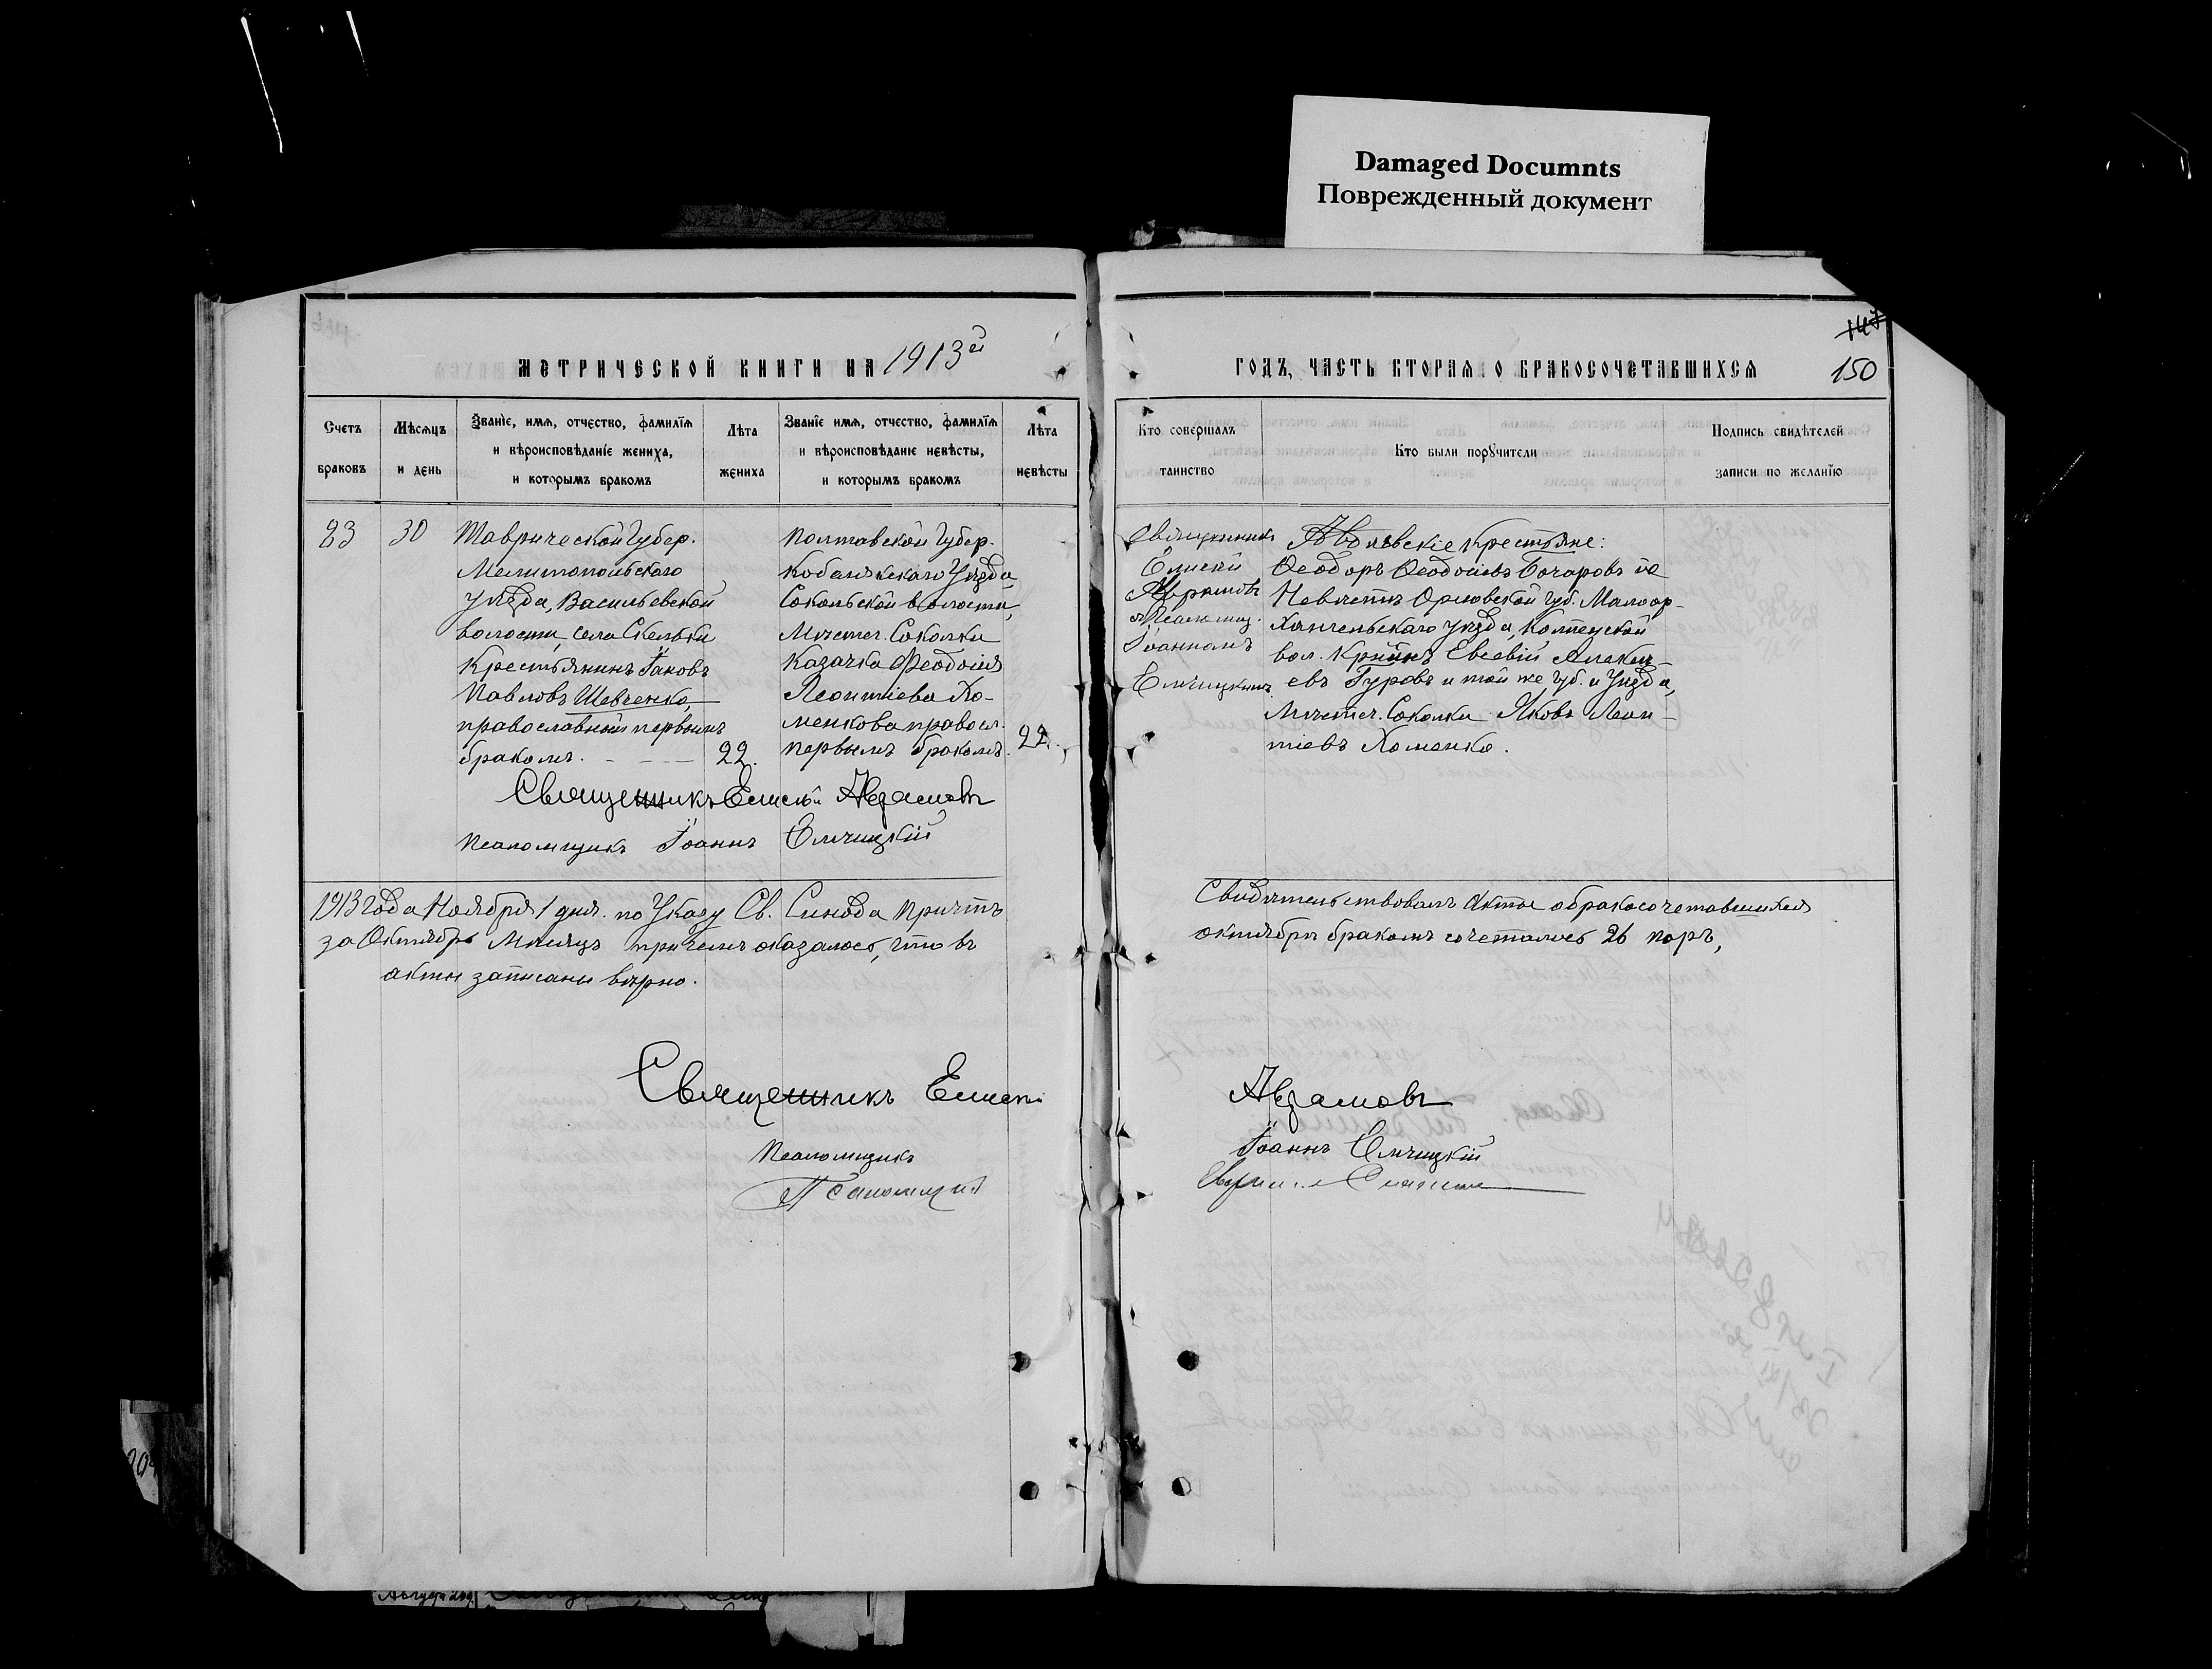 Damaged Documnts
Поврежденный документ
МЕТРИЧЕСКОЙ КНИГИ НА 1913й
ГОДЪ, ЧАСТЬ ВТОРАЯ О БРАКОСОЧЕТАВШИХСЯ
147
150
Счетъ браковъ
Мѣсяцъ и день
Званіе, имя, отчество, фамилія и вѣроисповѣданіе жениха, и которымъ бракомъ
Лѣта жениха
Званіе имя, отчество, фамилія и вѣроисповѣданіе невѣсты, и которымъ бракомъ
Лѣта невѣсты
Кто совершалъ таинство
Кто были поручители
Подпись свидѣтелей записи по желанію
23
30
Таврической Губер.
Мелитопольскаго
Уѣзда, Васильевской
волости, села Скельки
Крестьянинъ Іаковъ
Павловъ Шевченко,
православный первымъ
бракомъ.
22.
Полтавской Губер.
Кобелякскаго Уѣзда
Сокольской волости,
Мѣстеч. Соколки
Казачка Феодосія
Леонтіева Хо-
менкова правосл.
первымъ бракомъ.
22.
Священникъ
Елисей
Авраамовъ
Псаломщ.
Іоанномъ
Емчицкимъ
крестьяне:
Ѳеодоръ Ѳеодосіевъ Бочаровъ
Орловской губ. Малоар-
хангельскаго уѣзда, Колпенской
вол. Кр-нинъ Евсевій Алексѣ-
евъ Гуровъ и той же губ. и Уѣзда,
Мѣстеч. Соколки Яковъ Леон-
тіевъ Хоменко.
Священникъ Елисей Авраамовъ
Псаломщикъ Іоаннъ Емчицкій
1913 года Ноября 1 дня. по Указу Св. Синода Причтъ
за Октябрь Мѣсяцъ причемъ оказалось, что въ
акты записаны вѣрно.
Свидѣтельствовалъ Акты о бракосочетавшихся
октябрѣ бракомъ сочеталось 26 паръ,
Священникъ Елисей
Авраамовъ
Псаломщикъ
Іоаннъ Емчицкій
Псаломщикъ